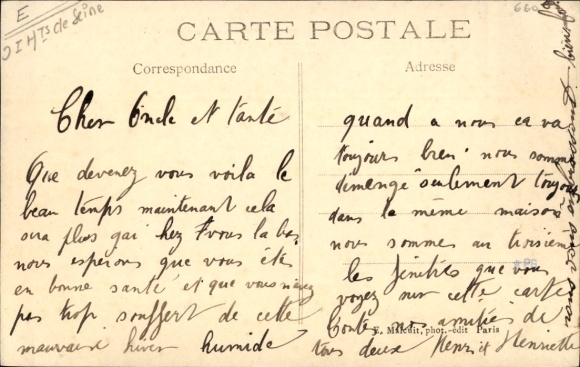 E
Hts de Seine
660
CARTE POSTALE
Correspondance
Adresse
Cher Oncle et tante
Que devenez vous voila le
beau temps maintenant cela
sera plus gai chez vous la bas
nous esperons que vous été
en bonne santé et que vous navez
pas trop souffert de cette
mauvaise hiver humide
quand a nous ca va
toujours bien nous sommes
demengé seulement toujours
dans la même maison
nous sommes au troisieme
les fenétres que vous
voyez sur cette carte
amitiés de
tous deux Henri et Henriette
E. Malcuit, phot.-edit Paris
nous